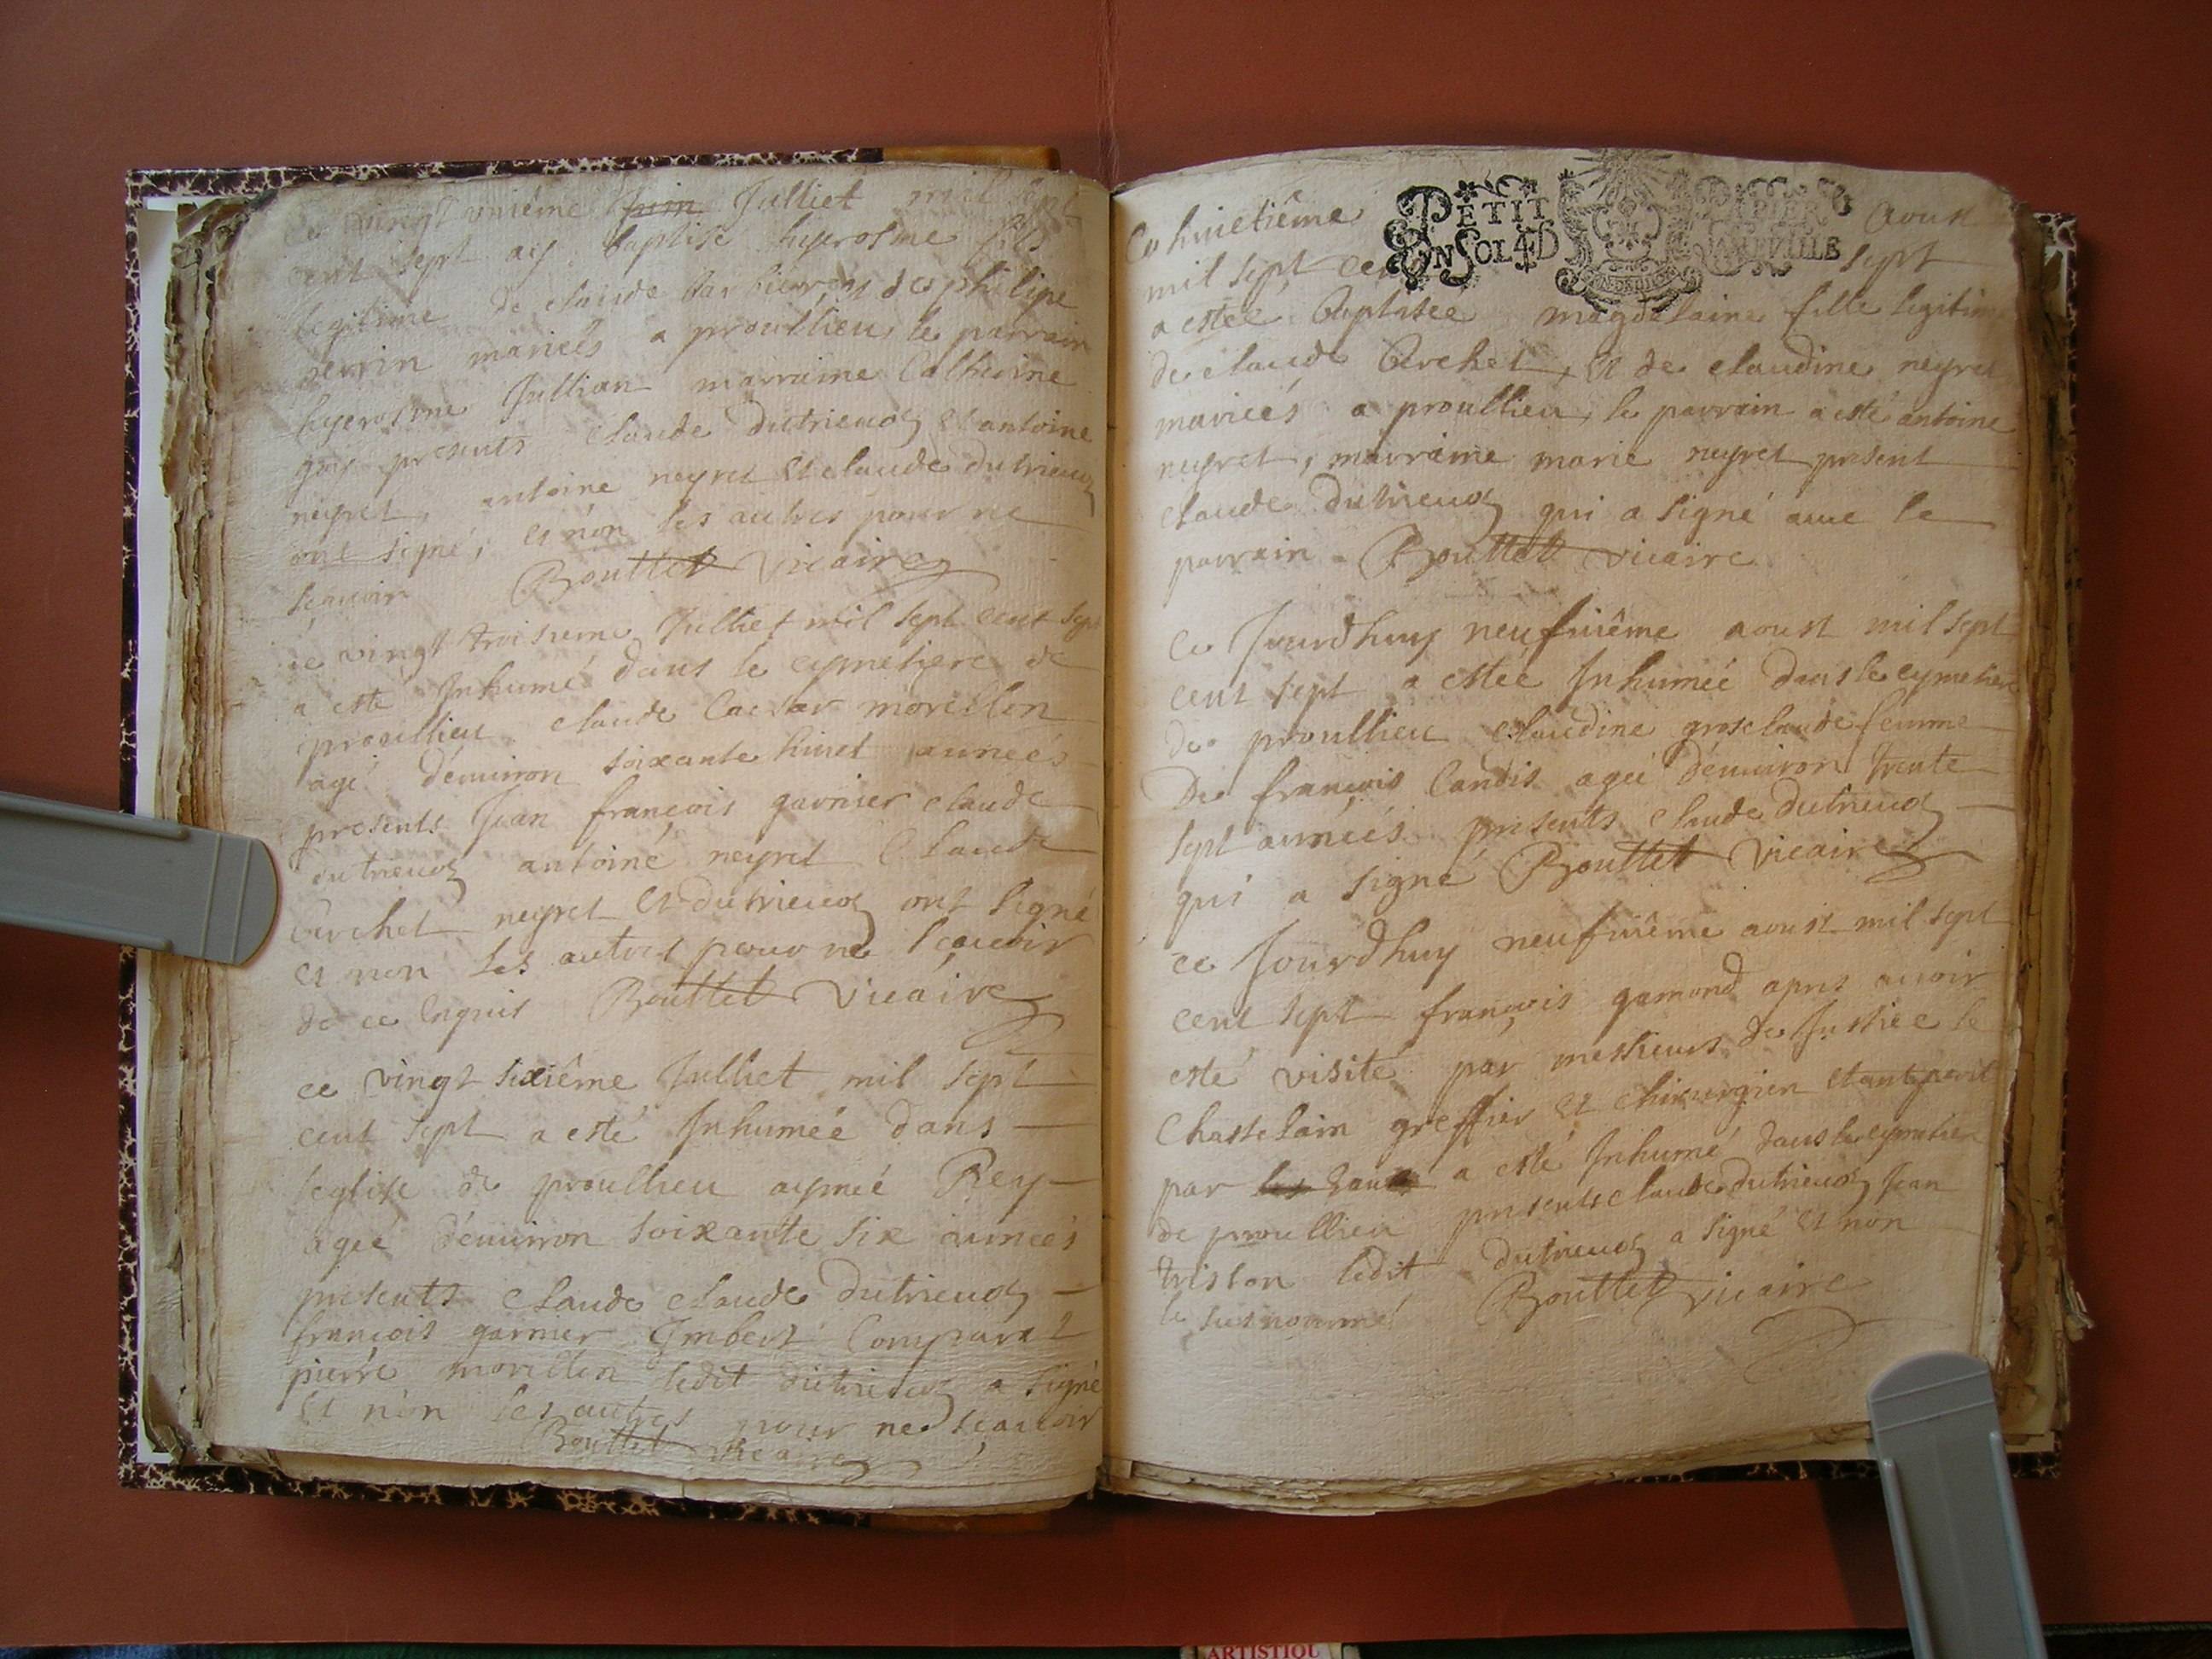 ce vingt uniême juin Julliet mil sept
cent sept ay baptisé hyerosme fils
legitime de claude barbier et de philipe
perrin mariéés a proullieu, le parrain
hyerosme Jullian marraine Catherine
presents claude dutrieux et antoine
neyret, antoine neyret et claude dutrieux
ont signé, et nón les autres pour ne
sçavoir Bouttet Vicaire
ce vingt troisieme Julliet mil sept cent sept
a esté Inhumé dans le cymetiere de
proullieu claude Caesar morellon
agé dénuiron soixante huict annéés
presents Jean françois garnier claude
dutrieux antoine neyret Claude
berchet neyret et dutrieux ont signé
et non les autres pour ne sçavoir
de ce Enquis Bouttet Vicaire
ce vingt sixiême Julliet mil sept
cent sept a esté Inhuméé dans
leglise de proullieu aymeé Rey
ageé dénuiron soixante six annéés
presents claude claude dutrieux
françois garnier Imbert Comparat
pierre morellon ledit dutrieux a signé
Et nón les autres pour ne sçavoir
Bouttet vicaire
PETIT PAPIER
EN SOL 4 D LA VILLE
Ce huictiême aoust
mil sept cent sept
a estéé baptiséé magdelaine fille legitime
de claude berchet, et de claudine neyret
mariéés a proullieu, le parrain a esté antoine
neyret, marraine marie neyret present
claude dutrieux qui a signé auec le
parrain Bouttet vicaire
ce Jourdhuy neufuiême aoust mil sept
cent sept a estéé Inhuméé dans le cymetiere
de proullieu claudine grosclaude femme
De françois Landis ageé dénuiron trente
sept annéés presents claude dutrieux
qui a signé Bouttet Vicaire
ce Jourdhuy neufuiême aoust mil sept
cent sept françois gamond apres auoir
esté visité par messieurs de Justice le
Chastelain greffier et chirurgien etant perit
par les Eaux a esté Inhumé dans le cymetiere
de proullieu presents claude dutrieux Jean
tristan ledit dutrieux a signé et non
le susnommé Bouttet vicaire
ARTISTIQU